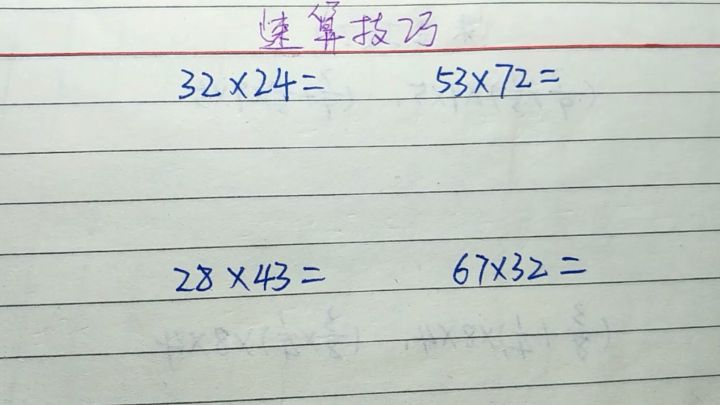 速算技巧
32×24= 53×72=
28×43= 67×32=